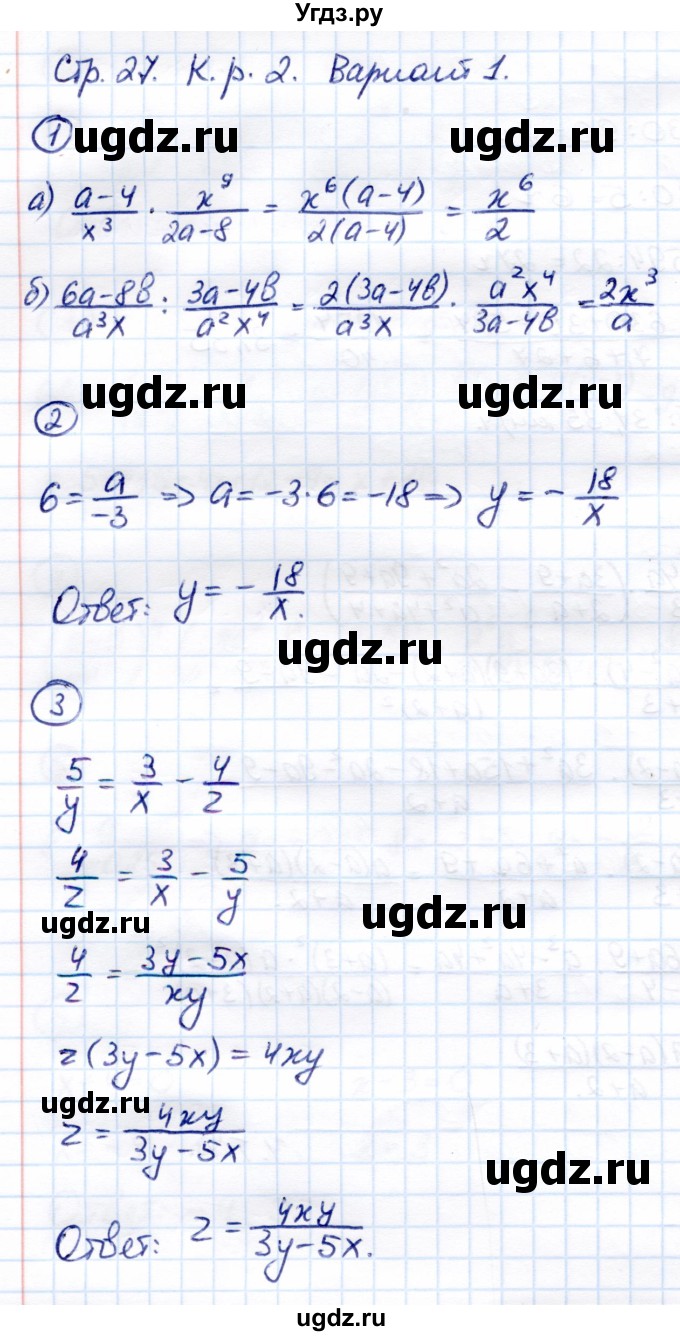 Угдз.ру
Стр. 27. К. р. 2. Вариант 1.
1
ugdz.ru ugdz.ru
а) (a-4)/x³ · x⁹/(2a-8) = x⁶(a-4)/2(a-4) = x⁶/2
б) (6a-8b)/a³x : (3a-4b)/a²x⁴ = 2(3a-4b)/a³x · a²x⁴/(3a-4b) = 2x³/a
ugdz.ru ugdz.ru
2
6 = a/-3 => a = -3·6 = -18 => y = - 18/x
Ответ: y = - 18/x.
ugdz.ru
3
5/y = 3/x - 4/z
4/z = 3/x - 5/y
ugdz.ru ugdz.ru
4/z = (3y-5x)/xy
z(3y-5x) = 4xy
ugdz.ru
z = 4xy/(3y-5x)
ugdz.ru
Ответ: z = 4xy/(3y-5x).
ugdz.ru